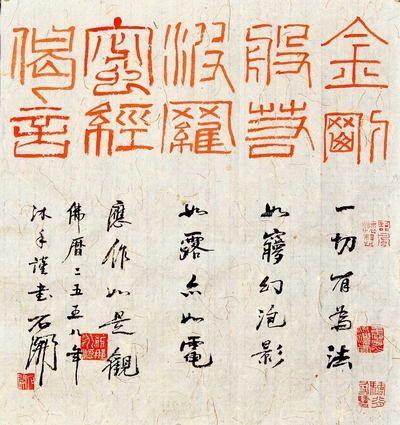 金剛
般若
波羅
蜜經
偈言
一切有為法
如夢幻泡影
如露亦如電
應作如是觀
佛曆二五五八年
沐手謹書石